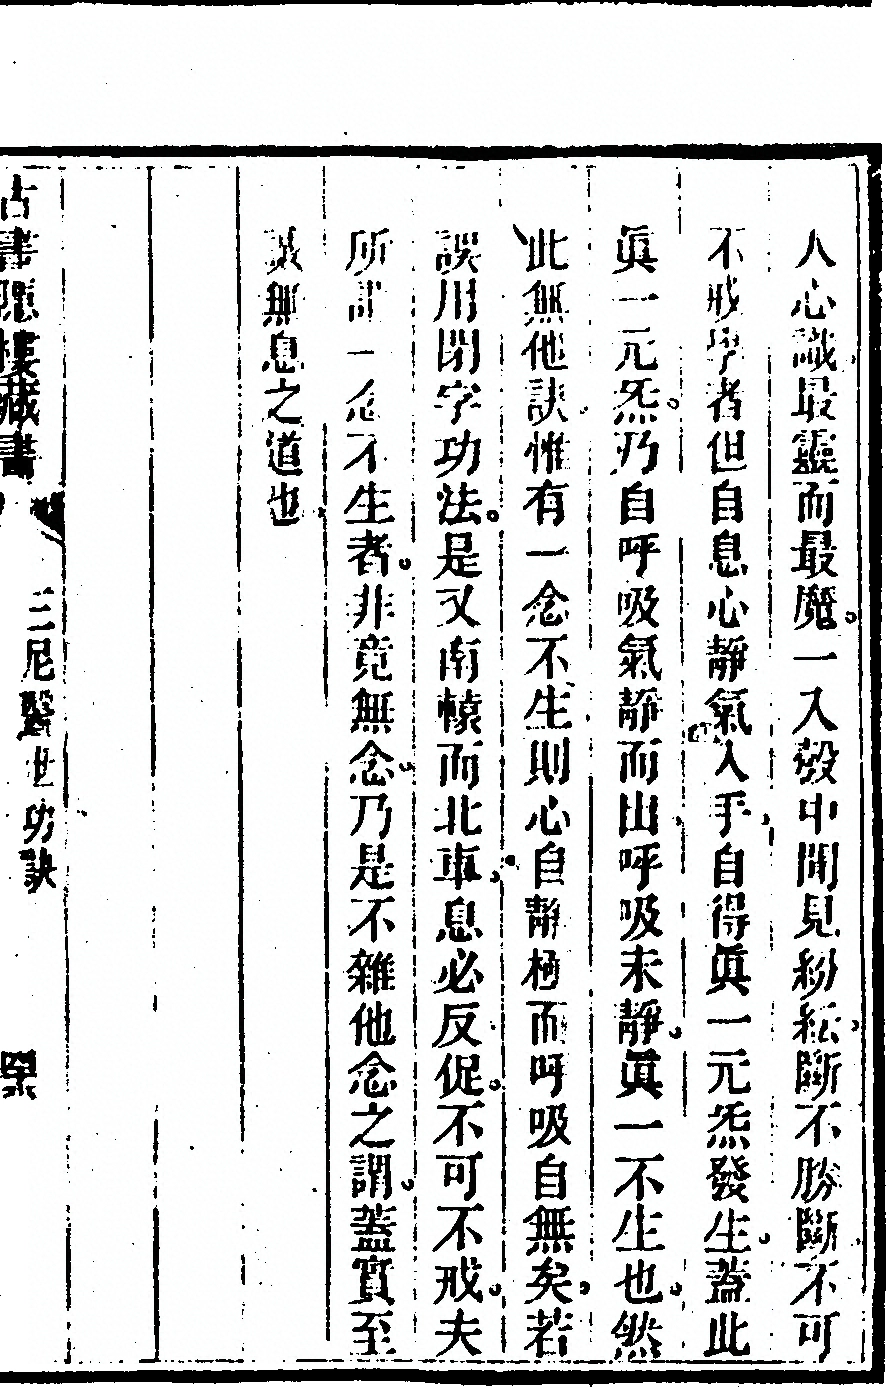 人心識最靈而最魔。一入彀中聞見紛紜斷不勝斷不可
不戒學者但自息心靜氣入手自得眞一元炁發生。蓋此
眞一元炁。乃自呼吸氣靜而出呼吸未靜。眞一不生也。然
此無他訣惟有一念不生則心自靜極而呼吸自無矣。若
誤用閉字功法。是又南轅而北車。息必反促。不可不戒。夫
所謂一念不生者。非竟無念。乃是不雜他念之謂。蓋實至
誠無息之道也
古書隱樓藏書
三尼醫世功訣